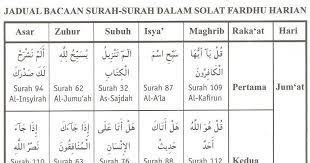 JADUAL BACAAN SURAH-SURAH DALAM SOLAT FARDHU HARIAN
Asar Zuhur Subuh Isya' Maghrib Raka'at Hari
أَلَمْ نَشْرَحْ يُسَبِّحُ لِلَّهِ الٓمٓ تَنْزِيلُ سَبِّحِ اسْمَ قُلْ يَا أَيُّهَا
لَكَ صَدْرَكَ الْكِتَابِ الْكَافِرُونَ
Surah 94 Surah 62 Surah 32 Surah 87 Surah 109 Pertama Jum'at
Al-Insyirah Al-Jumu'ah As-Sajdah Al-A'la Al-Kafirun
إِذَا جَاءَ إِذَا جَاءَكَ هَلْ أَتَى عَلَى هَلْ أَتَاكَ قُلْ هُوَ اللَّهُ
الْمُنَافِقُونَ
Surah 110 Surah 63 Surah 76 Surah 88 Surah 112 Kedua